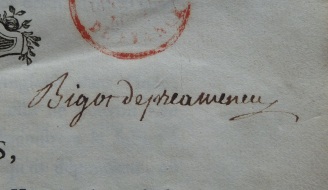 Bigot depreameneu
S,